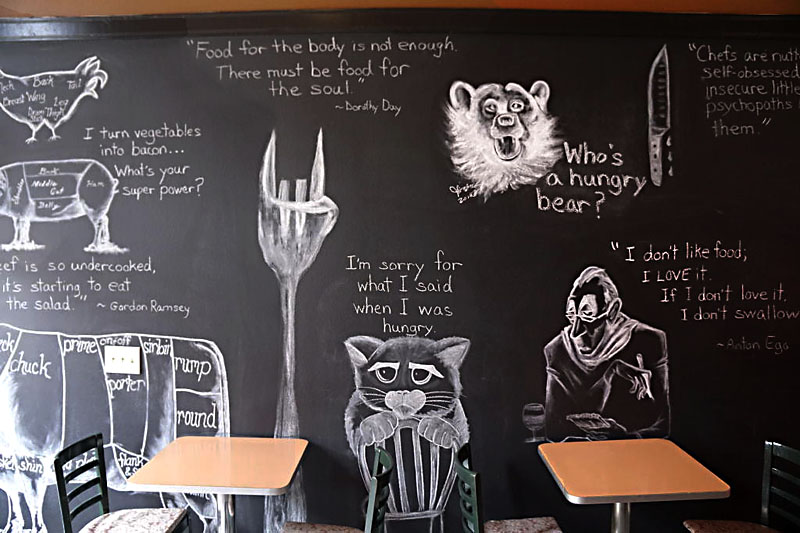 "Food for the body is not enough.
There must be food for
the soul."
~Dorothy Day
Back
Tail
Breast
Wing
Leg
Thigh
I turn vegetables
into bacon...
What's your
super power?
Middle
Cut
Ham
Belly
is so undercooked,
it's starting to eat
the salad." ~ Gordon Ramsey
chuck
prime
on-off
sirloin
rump
porter
round
Who's
a hungry
bear?
"Chefs are nutt
self-obsessed
insecure little
psychopaths
them."
I'm sorry for
what I said
when I was
hungry.
"I don't like food;
I LOVE it.
If I don't love it,
I don't swallow
~Anton Ego